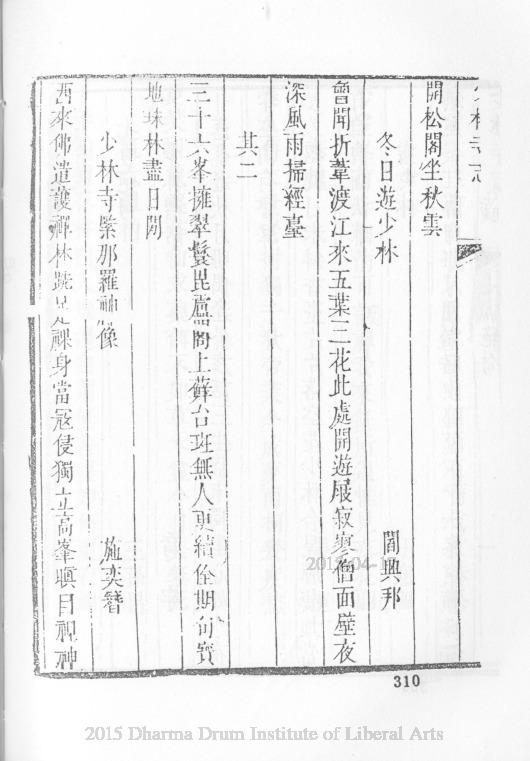 開松閣坐秋雲
冬日遊少林 閻興邦
曾聞折葦渡江來五葉三花此處開遊屐寂寥僧面壁夜
深風雨掃經臺
其二
三十六峯擁翠鬟毘盧閣上蘚台斑無人更續佺期句寶
地珠林盡日閒
少林寺緊那羅神像 施奕簪
西來佛遣護禪林跣足裸身當寇侵獨立高峯瞋目視神
310
2015 Dharma Drum Institute of Liberal Arts